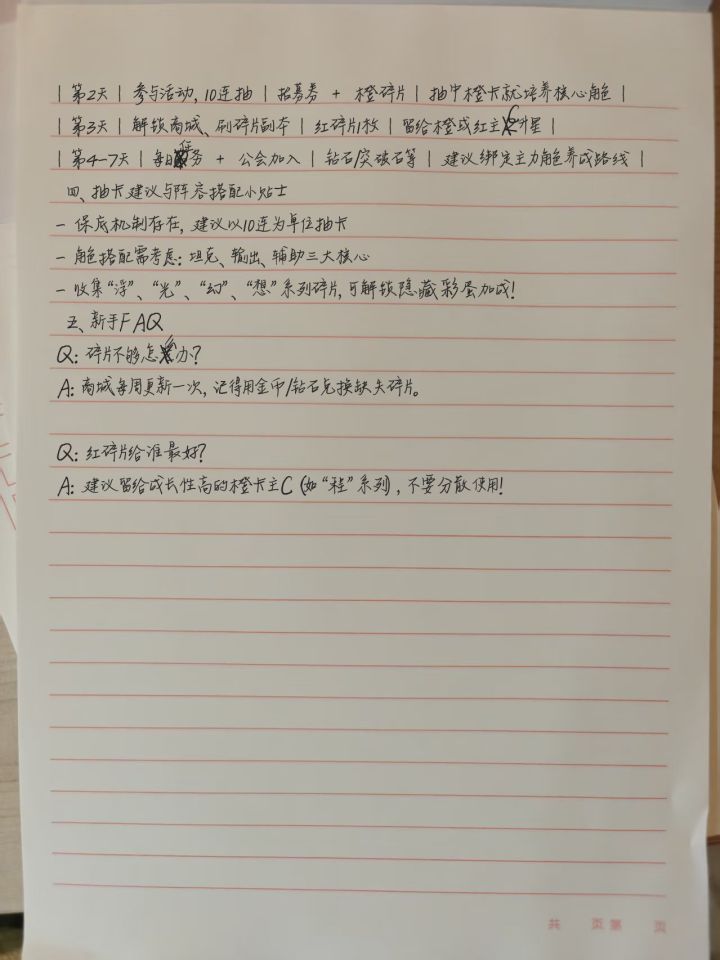 | 第2天 | 参与活动, 10连抽 | 招募券 + 橙碎片 | 抽中橙卡就培养核心角色 |
| 第3天 | 解锁商城、刷碎片副本 | 红碎片1枚 | 留给橙或红主C升星 |
| 第4-7天 | 每日任务 + 公会加入 | 钻石/突破石等 | 建议绑定主力角色养成路线 |
四、抽卡建议与阵容搭配小贴士
- 保底机制存在, 建议以10连为单位抽卡
- 角色搭配需考虑: 坦克、输出、辅助三大核心
- 收集“浮”、“光”、“幻”、“想”系列碎片, 可解锁隐藏彩蛋加成!
五、新手FAQ
Q: 碎片不够怎办?
A: 商城每周更新一次, 记得用金币/钻石兑换缺失碎片。
Q: 红碎片给谁最好?
A: 建议留给成长性高的橙卡主C (如“ ”系列), 不要分散使用!
页 第 页 共